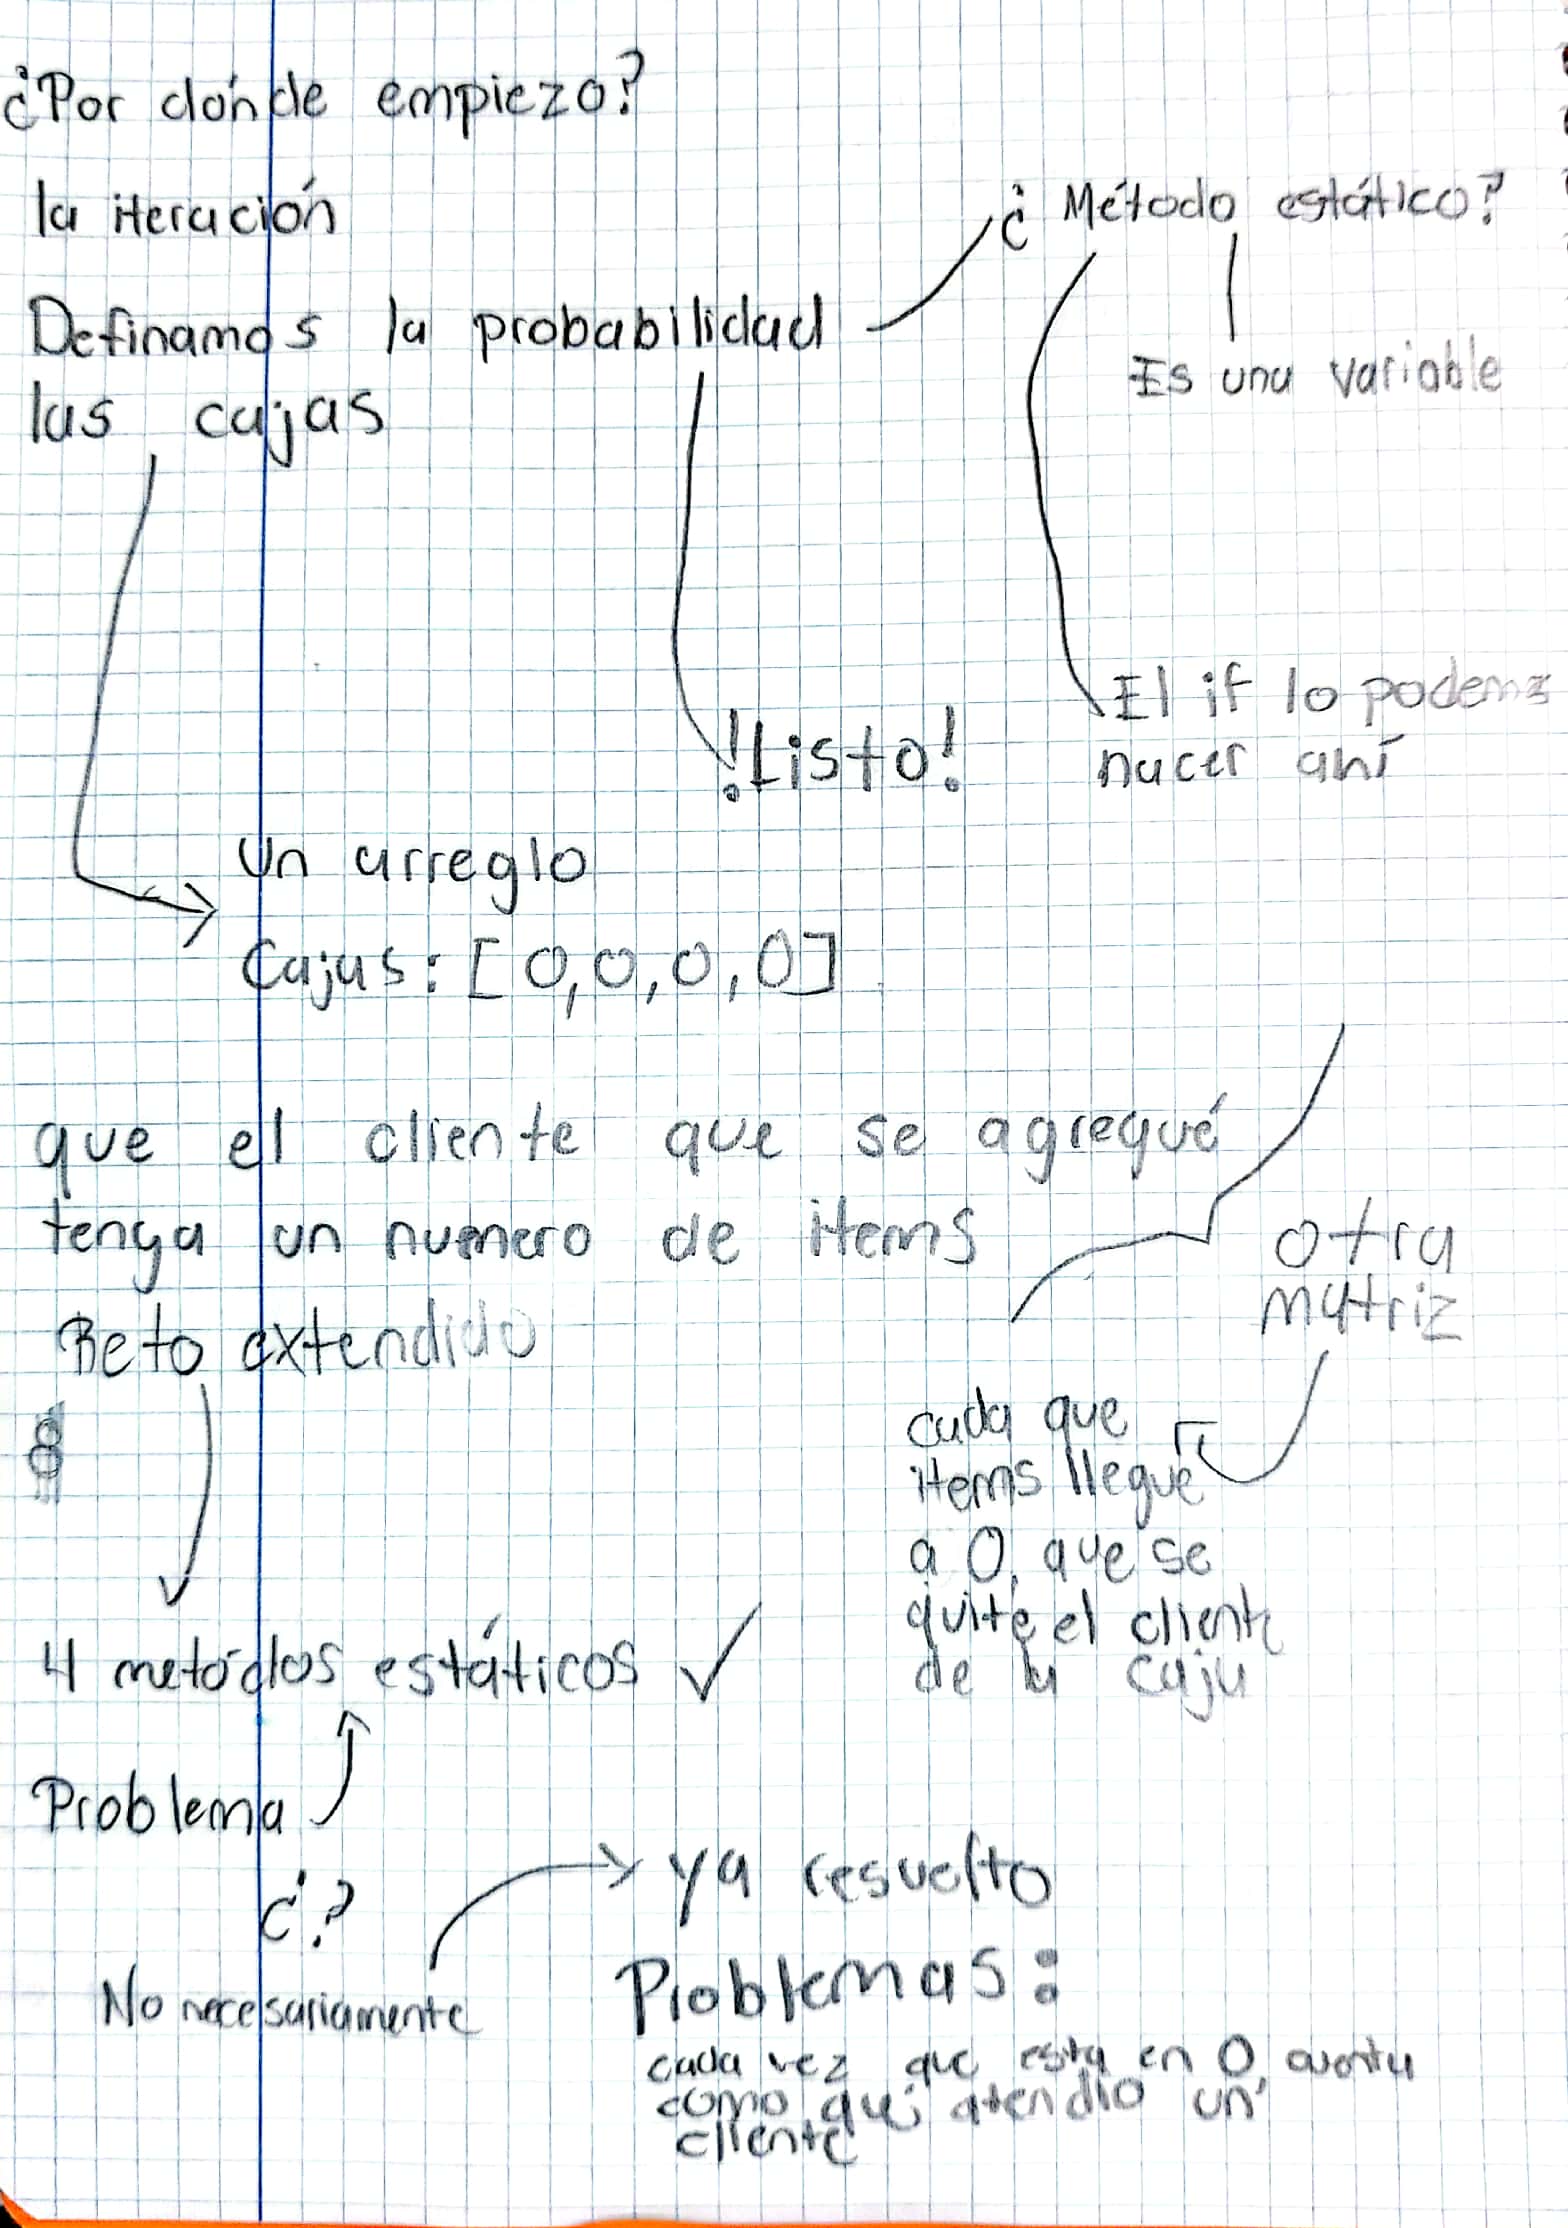 ¿Por dónde empiezo?
la iteración
¿Método estático?
Definamos la probabilidad
Es una variable
las cajas
El if lo podemos
hacer ahí
!Listo!
Un arreglo
Cajas: [0,0,0,0]
que el cliente que se agregué
tenga un numero de items
otra
matriz
Reto extendido
cada que
items llegue
a 0, que se
quite el cliente
de la caja
4 metódos estáticos ✓
Problema
¿?
ya resuelto
No necesariamente
Problemas:
cada vez que esta en 0, cuenta
como que atendio un
cliente